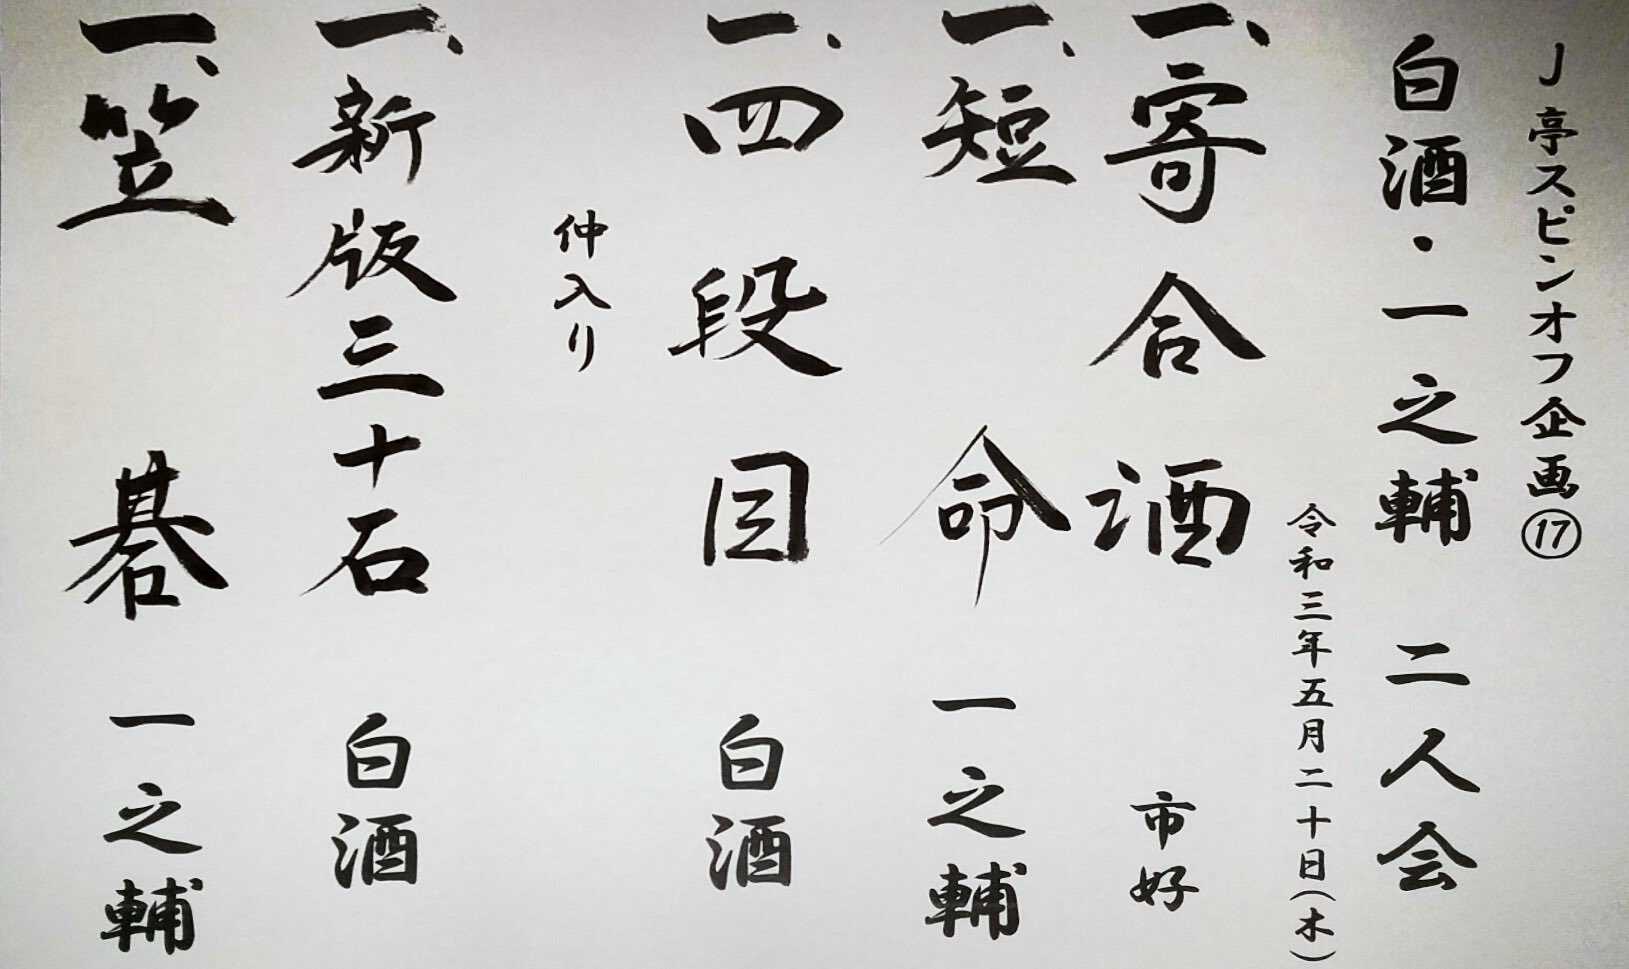 J亭スピンオフ企画⑰
白酒・一之輔 二人会
令和三年五月二十日(木)
一、寄合酒 市好
一、短命 一之輔
一、四段目 白酒
仲入り
一、新版三十石 白酒
一、笠碁 一之輔